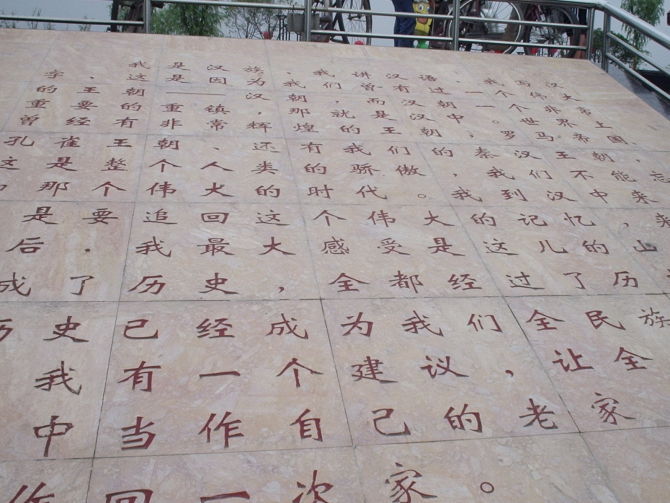 我是汉族，我讲汉语，我写汉
字，这是因为我们曾有过一个伟大
的王朝——汉朝，而汉朝一个非常
重要的重镇，那就是汉中。世界上
曾经有非常辉煌的王朝，罗马帝国、
孔雀王朝、还有我们的秦汉王朝，
这是整个人类的骄傲，我们不能忘
那个伟大的时代。我到汉中来
是要追回这个伟大的记忆，来
后，我最大感受是这儿的山
成了历史，全都经过了历
历史已经成为我们全民族
我有一个建议，让全
中当作自己的老家
作回一次家。